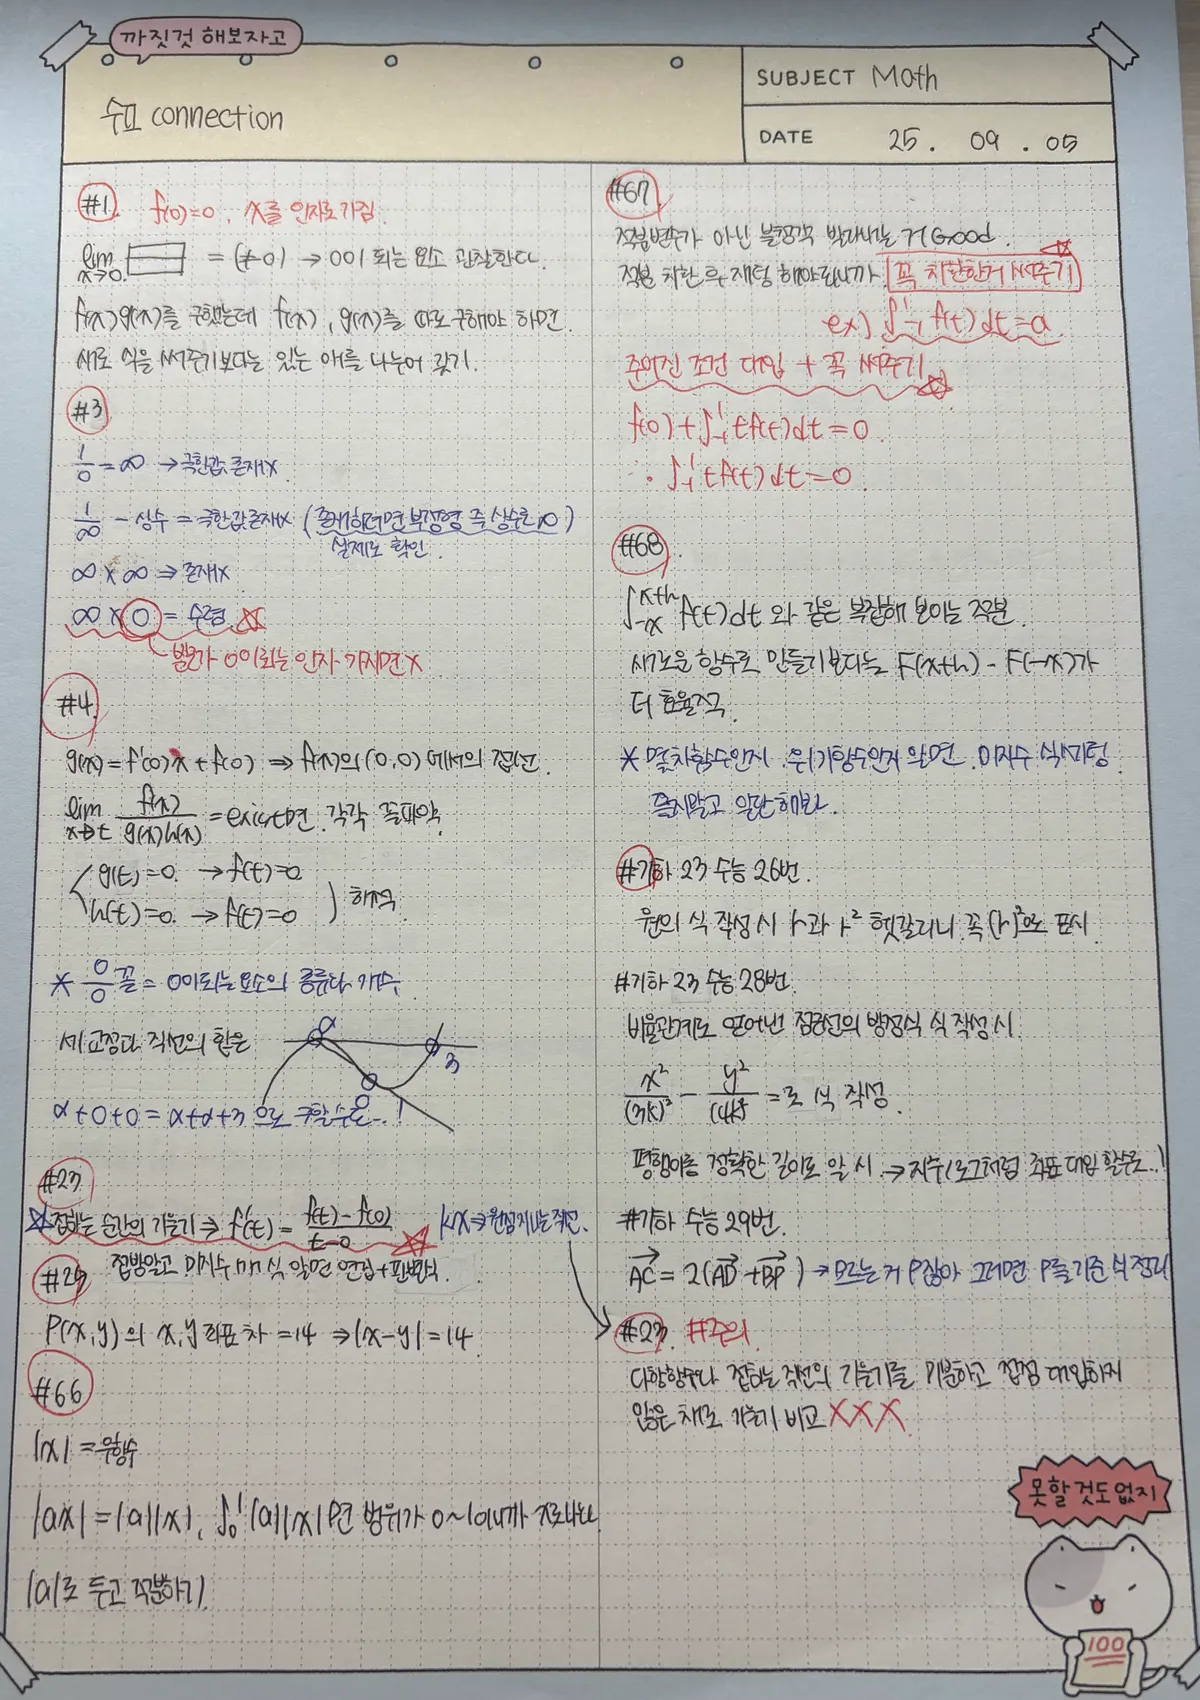 까짓것 해보자고
수II connection
SUBJECT Math
DATE 25. 09. 05
#1. f(0)=0, x를 인자로 가짐
lim x→0 = (≠0) → 0이 되는 요소 관찰한다.
f(x)g(x)를 구했는데 f(x), g(x)를 따로 구해야 하면
새로 식을 써주기보다는 있는 애를 나누어 갖기.
#3
1/0 = ∞ → 극한값 존재X
1/∞ - 상수 = 극한값존재X (존재하려면 부정형 즉 상수는 0)
실제로 확인
∞ × ∞ ⇒ 존재X
∞ × 0 = 수렴
별로가 0이 되는 인자 가지면 X
#4.
g(x) = f'(0)x + f(0) ⇒ f(x)의 (0,0)에서의 접선
lim x→t f(x)/g(x)h(x) = exist면 각각 쪼깨약
g(t)=0. → f(t)=0
h(t)=0. → f(t)=0 ) 해석
* 0/0 꼴 = 0이 되는 요소의 종류와 개수
세 교점과 직선의 합은
α 3
α+0+0 = α+α+3 으로 구할수도..!
#23
☆접하는 순간의 기울기 ⇒ f'(t) = f(t)-f(0)/t-0
kx ⇒ 원점지나는 직선.
#29 접방알고 미지수 식 알면 연립+판별식.
P(x,y)의 x,y좌표 차 = 14 ⇒ |x-y| = 14
#66
|x| = 우함수
|ax| = |a||x|, ∫₀¹ |a||x| 면 범위가 0~1이니까
|a|로 두고 적분하기.
#67
적분변수가 아닌 불청객 박차내는 거 Good.
적분 치환 후 재팅 해야되니까 꼭 치환한거 써주기
ex) ∫₋₁¹ f(t)dt = a
주어진 조건 대입 + 꼭 써주기
f(0) + ∫₋₁¹ tf(t)dt = 0
∴ ∫₋₁¹ tf(t)dt = 0
#68
∫₋ₓˣ⁺ʰ f(t)dt 와 같은 복잡해 보이는 적분
새로운 함수로 만들기보다는 F(x+h) - F(-x)가
더 효율적
* 몇차함수인지, 우/기함수인지 알면 미지수 식세팅
즐기말고 일단 해봐.
#기하 23 수능 26번.
원의 식 작성 시 r과 r² 헷갈리니 꼭 [r]²으로 표시
#기하 23 수능 28번.
비율관계로 얻어낸 점근선의 방정식 식 작성 시
x²/(3k)² - y²/(4k)² = 로 식 작성.
평행이동 정확한 길이로 알 시 → 지수/로그처럼 좌표대입 할수도..!
#기하 수능 29번.
AC = 2(AD + BP) → 모르는 거 P잖아 그러면 P를 기준 식 정리
#23. #주의
다항함수나 접하는 직선의 기울기를 미분하고 접점 대입하지
않은 채로 기울기 비교 XXX
못할것도없지
100